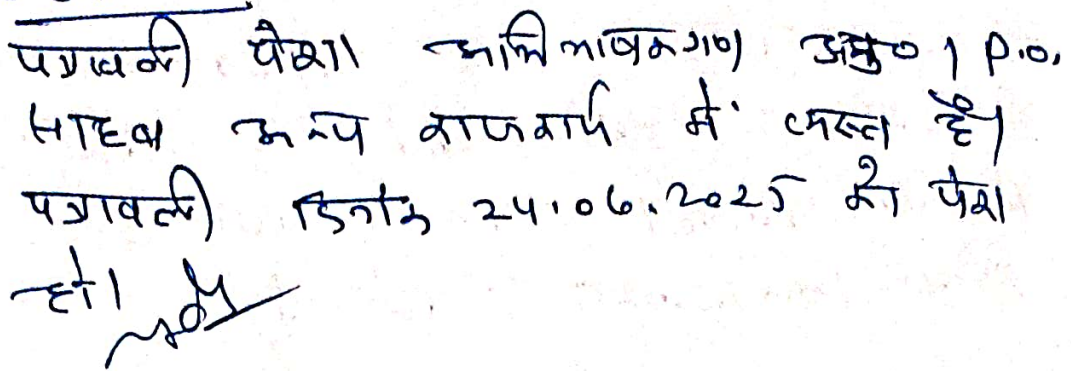 पत्रावली पेश। अभिभाषकगण अनु० । P.O.
साहब अन्य राजकार्य में व्यस्त है।
पत्रावली दिनांक 24.06.2025 को पेश
हो।